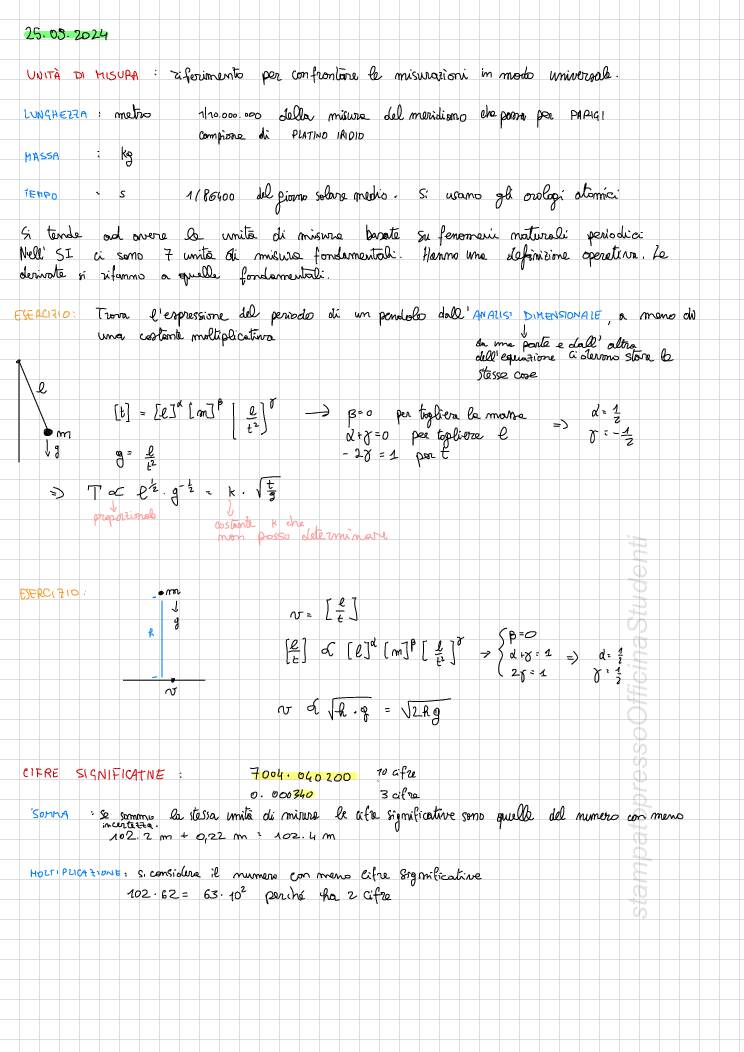 25.09.2024
UNITÀ DI MISURA : riferimento per confrontare le misurazioni in modo universale.
LUNGHEZZA : metro 1/10.000.000 della misura del meridiano che passa per PARIGI
campione di PLATINO IRIDIO
MASSA : kg
TEMPO : s 1/86400 del giorno solare medio. Si usano gli orologi atomici
Si tende ad avere le unità di misura basate su fenomeni naturali periodici
Nell' SI ci sono 7 unità di misura fondamentali. Hanno una definizione operativa. Le
derivate si rifanno a quelle fondamentali.
ESERCIZIO: Trova l'espressione del periodo di un pendolo dall'ANALISI DIMENSIONALE, a meno di
una costante moltiplicativa
da una parte e dall' altra
dell'equazione ci devono stare le
stesse cose
l
m
g
[t] = [l]^α [m]^β [l/t²]^γ → β=0 per togliere la massa => α = 1/2
α+γ=0 per togliere l γ = -1/2
g = l/t² -2γ = 1 per t
=> T ∝ l^½ · g^-½ = k · √(t/g)
proporzionale
costante k che
non posso determinare
ESERCIZIO:
m
g
h
v
v = [l/t]
[l/t] ∝ [l]^α [m]^β [l/t²]^γ → { β=0
α+γ=1 => α=1/2
2γ=1 γ=1/2
v ∝ √h·g = √2hg
CIFRE SIGNIFICATIVE : 7004.040200 10 cifre
0.000340 3 cifre
SOMMA : se sommo la stessa unità di misura le cifre significative sono quelle del numero con meno
incertezza.
102.2 m + 0,22 m = 102.4 m
MOLTIPLICAZIONE: si considera il numero con meno cifre significative
102·62 = 63·10² perché ha 2 cifre
stampatopressoOfficinaStudenti